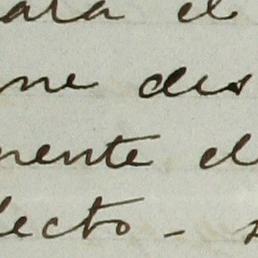 ara el
ne des
mente el
fecto -